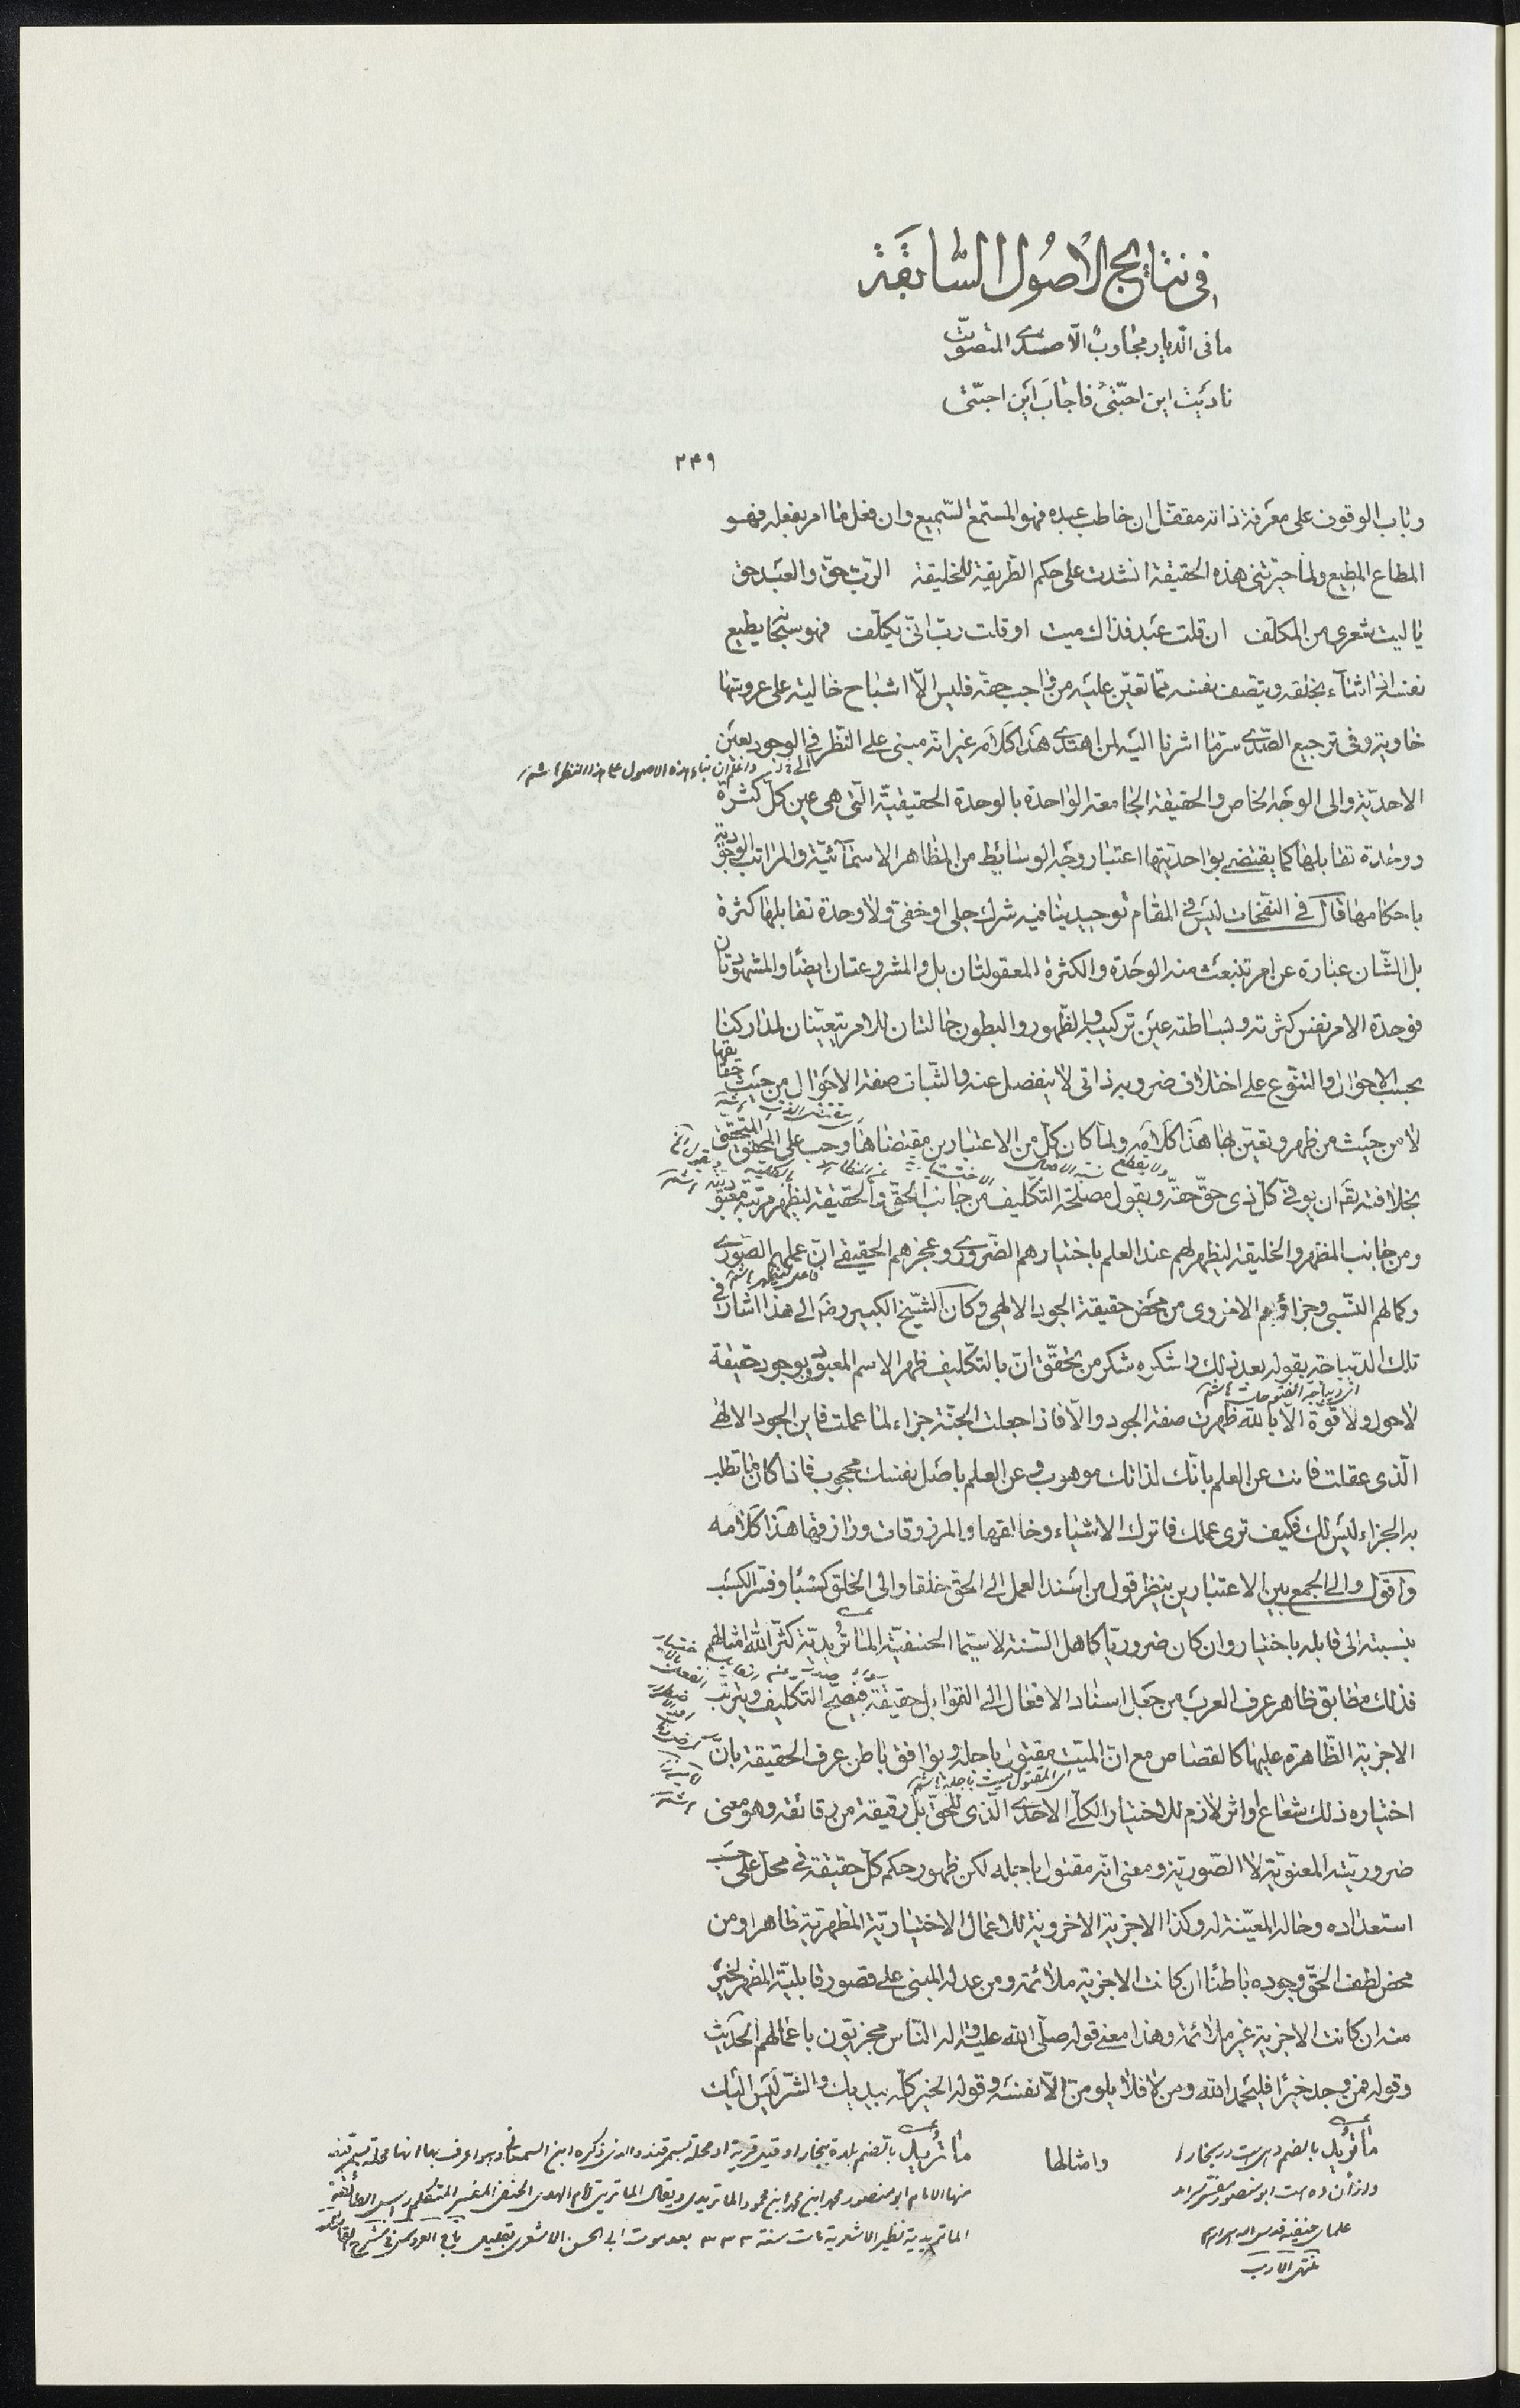 في نتايج الأصول السابقة
ما في الديار مجاوب الّا صدى المتصوّت
ناديت اين احبّتي فاجاب اين احبّتي
٢٤٩
وباب الوقوف على معرفة ذاته مقفل ان خاطب عبده فهو المستمع السّميع وان فعل ما امر بفعله فهو
المطاع المطيع ولما حيرتني هذه الحقيقة انشدت على حكم الطريقة للخليقة الربّ حقّ والعبد حق
يا ليت شعري من المكلّف ان قلت عبد فذاك ميت او قلت ربّ انّى يكلّف فهو سبحانه يطيع
نفسه اذا شاء بخلقه وينصف نفسه ممّا تعيّن عليه من واجب حقه فليس الّا اشباح خالية على عروشها
خاوية وفي ترجيع الصّدى سرّ ما اشرنا اليه لمن اهتدى هذا كلامه غير انّه مبنى على النّظر في الوجود بعين
واعلم ان بناء هذه الاصول على هذا النظر
الاحديّة والى الوجه الخاص والحقيقة الجامعة الواحدة بالوحدة الحقيقيّة الّتى هى عين كلّ كثرة
ووحدة تقابلها كما يقتضى بواحديّتها اعتبار وجه الوسايط من المظاهر الاسمآئيّة والمراتب الوجودية
باحكامها قال في النفحات ليس في المقام توحيد ينافيه شرك جلى او خفى ولا وحدة تقابلها كثرة
بل الشّان عبارة عن امر تنبعث منه الوحدة والكثرة المعقولتان بل والمشروعتان ايضًا والمشهودتان
فوحدة الامر نفس كثرته وبساطته عين تركيبه والظهور والبطون حالتان للامر يتعيّنان لمداركنا
بحسب الاحوال والتنوّع على اختلاف ضروبه ذاتى لا ينفصل عنه والثّبات صفة الاحوال من حيث حقايقها
لا من حيث من ظهر وتعيّن بها هذا كلامه ولما كان كلّ من الاعتبارين مقتضاها وجب على المحقق المتحقق
بخلافته تع ان يوفى كلّ ذى حقّ حقّه ويقول مصلحة التكليف من جانب الحقّ والحقيقة ليظهر مرتبة معبوديته
ومن جانب المظهر والخليقة ليظهر لهم عند العلم باختيارهم الضّرورى وعجزهم الحقيقي انّ عملهم الصّورى
وكمالهم النّسبى وجزاؤهم الاخروى من محض حقيقة الجود الالهى وكان الشّيخ الكبير رضه الى هذا اشار في
تلك الدّيباجة بقوله بعد ذلك واشكره شكر من تحقّق انّ بالتكليف ظهر الاسم المعبود وبوجود حقيقة
اى ديباجه الفتوحات
لا حول ولا قوّة الّا بالله ظهرت صفة الجود والّا فاذا جعلت الجنّة جزاء لما عملت فاين الجود الالهى
الّذى عقلت فانت عن العلم بانّك لذاتك موهوب وعن العلم باصل نفسك محجوب فاذا كان ما تطلب
به الجزاء ليس لك فكيف ترى عملك فاترك الاشياء وخالقها والمرزوقات ورازقها هذا كلامه
واقول والى الجمع بين الاعتبارين ينظر قول من اسند العمل الى الحق خلقا والى الخلق كسبًا وفسّر الكسب
بنسبته الى قابله باختيار وان كان ضروريّا كاهل السّنة لا سيّما الحنفيّة الماتريديّة كثّر الله امثالهم
فذلك مطابق ظاهر عرف العرب من جعل اسناد الافعال الى القوابل حقيقة فيصحّ التكليف ويترتب
الاجزية الظّاهرة عليها كالقصاص مع انّ الميّت مقتول باجله ويوافق باطن عرف الحقيقة بانّ
اى المقتول ميت باجله
اختياره ذلك شعاع او اثر لازم للاختيار الكلّى الاحدى الّذى للحقّ بل رقيقة من رقائقه وهو معنى
ضروريّته المعنويّة لا الصّوريّة ومعنى انّه مقتول باجله لكن ظهور حكم كلّ حقيقة في محلّ على حسب
استعداده وحاله المعيّنة له وكذا الاجزية الاخروية للاعمال الاختياريّة المظهريّة ظاهرا ومن
محض لطف الحقّ وجوده باطنًا ان كانت الاجزية ملائمة ومن عدله المبنى على قصور قابليّة المظهر لخير
منه ان كانت الاجزية غير ملائمة وهذا معنى قوله صلّى الله عليه واله النّاس مجزيّون باعمالهم الحديث
وقوله فمن وجد خيرًا فليحمد الله ومن لا فلا يلومنّ الّا نفسه وقوله الخير كلّه بيديك والشّر ليس اليك
وامثالها
ماتريد بالضم دهى است در بخارا
وازان ده است ابو منصور مفسّر سرامد
علماى حنفيه قدس الله اسرارهم
منتهى الارب
ماتريد بالضم بلدة ببخارا وقيل قرية او محلة بسمرقند والذى ذكره ابن السمعانى وبه اعرف بها انها محلة بسمرقند
منها الامام ابو منصور محمد ابن محمد ابن محمود الماتريدى ويقال الماتريتى امام الهدى الحنفى المفسر المتكلم رئيس الطائفة
الماتريدية نظير الاشعرية مات سنة ٣٣٣ بعد موت ابى الحسن الاشعرى بقليل تاج العروس في شرح القاموس